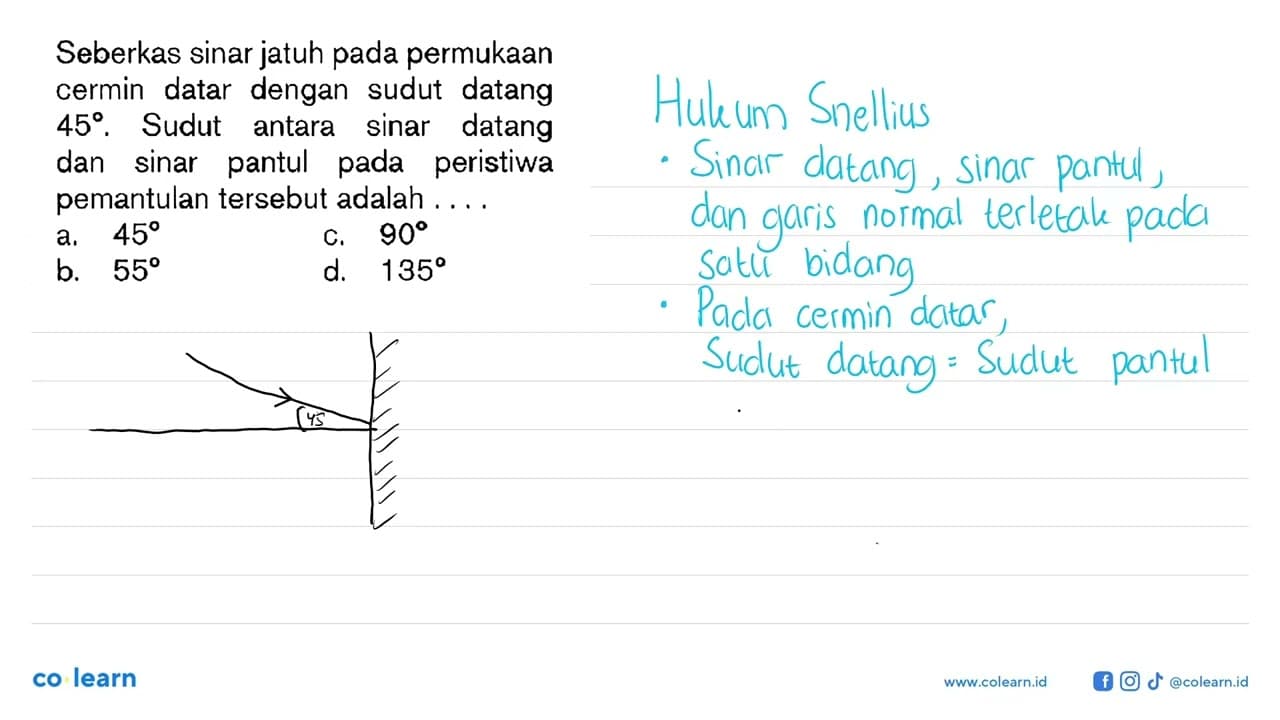 Seberkas sinar jatuh pada permukaan
cermin datar dengan sudut datang
45°. Sudut antara sinar datang
dan sinar pantul pada peristiwa
pemantulan tersebut adalah . . . .
a. 45° c. 90°
b. 55° d. 135°
45
Hukum Snellius
• Sinar datang, sinar pantul,
dan garis normal terletak pada
satu bidang
• Pada cermin datar,
Sudut datang = Sudut pantul
co learn
www.colearn.id
@colearn.id